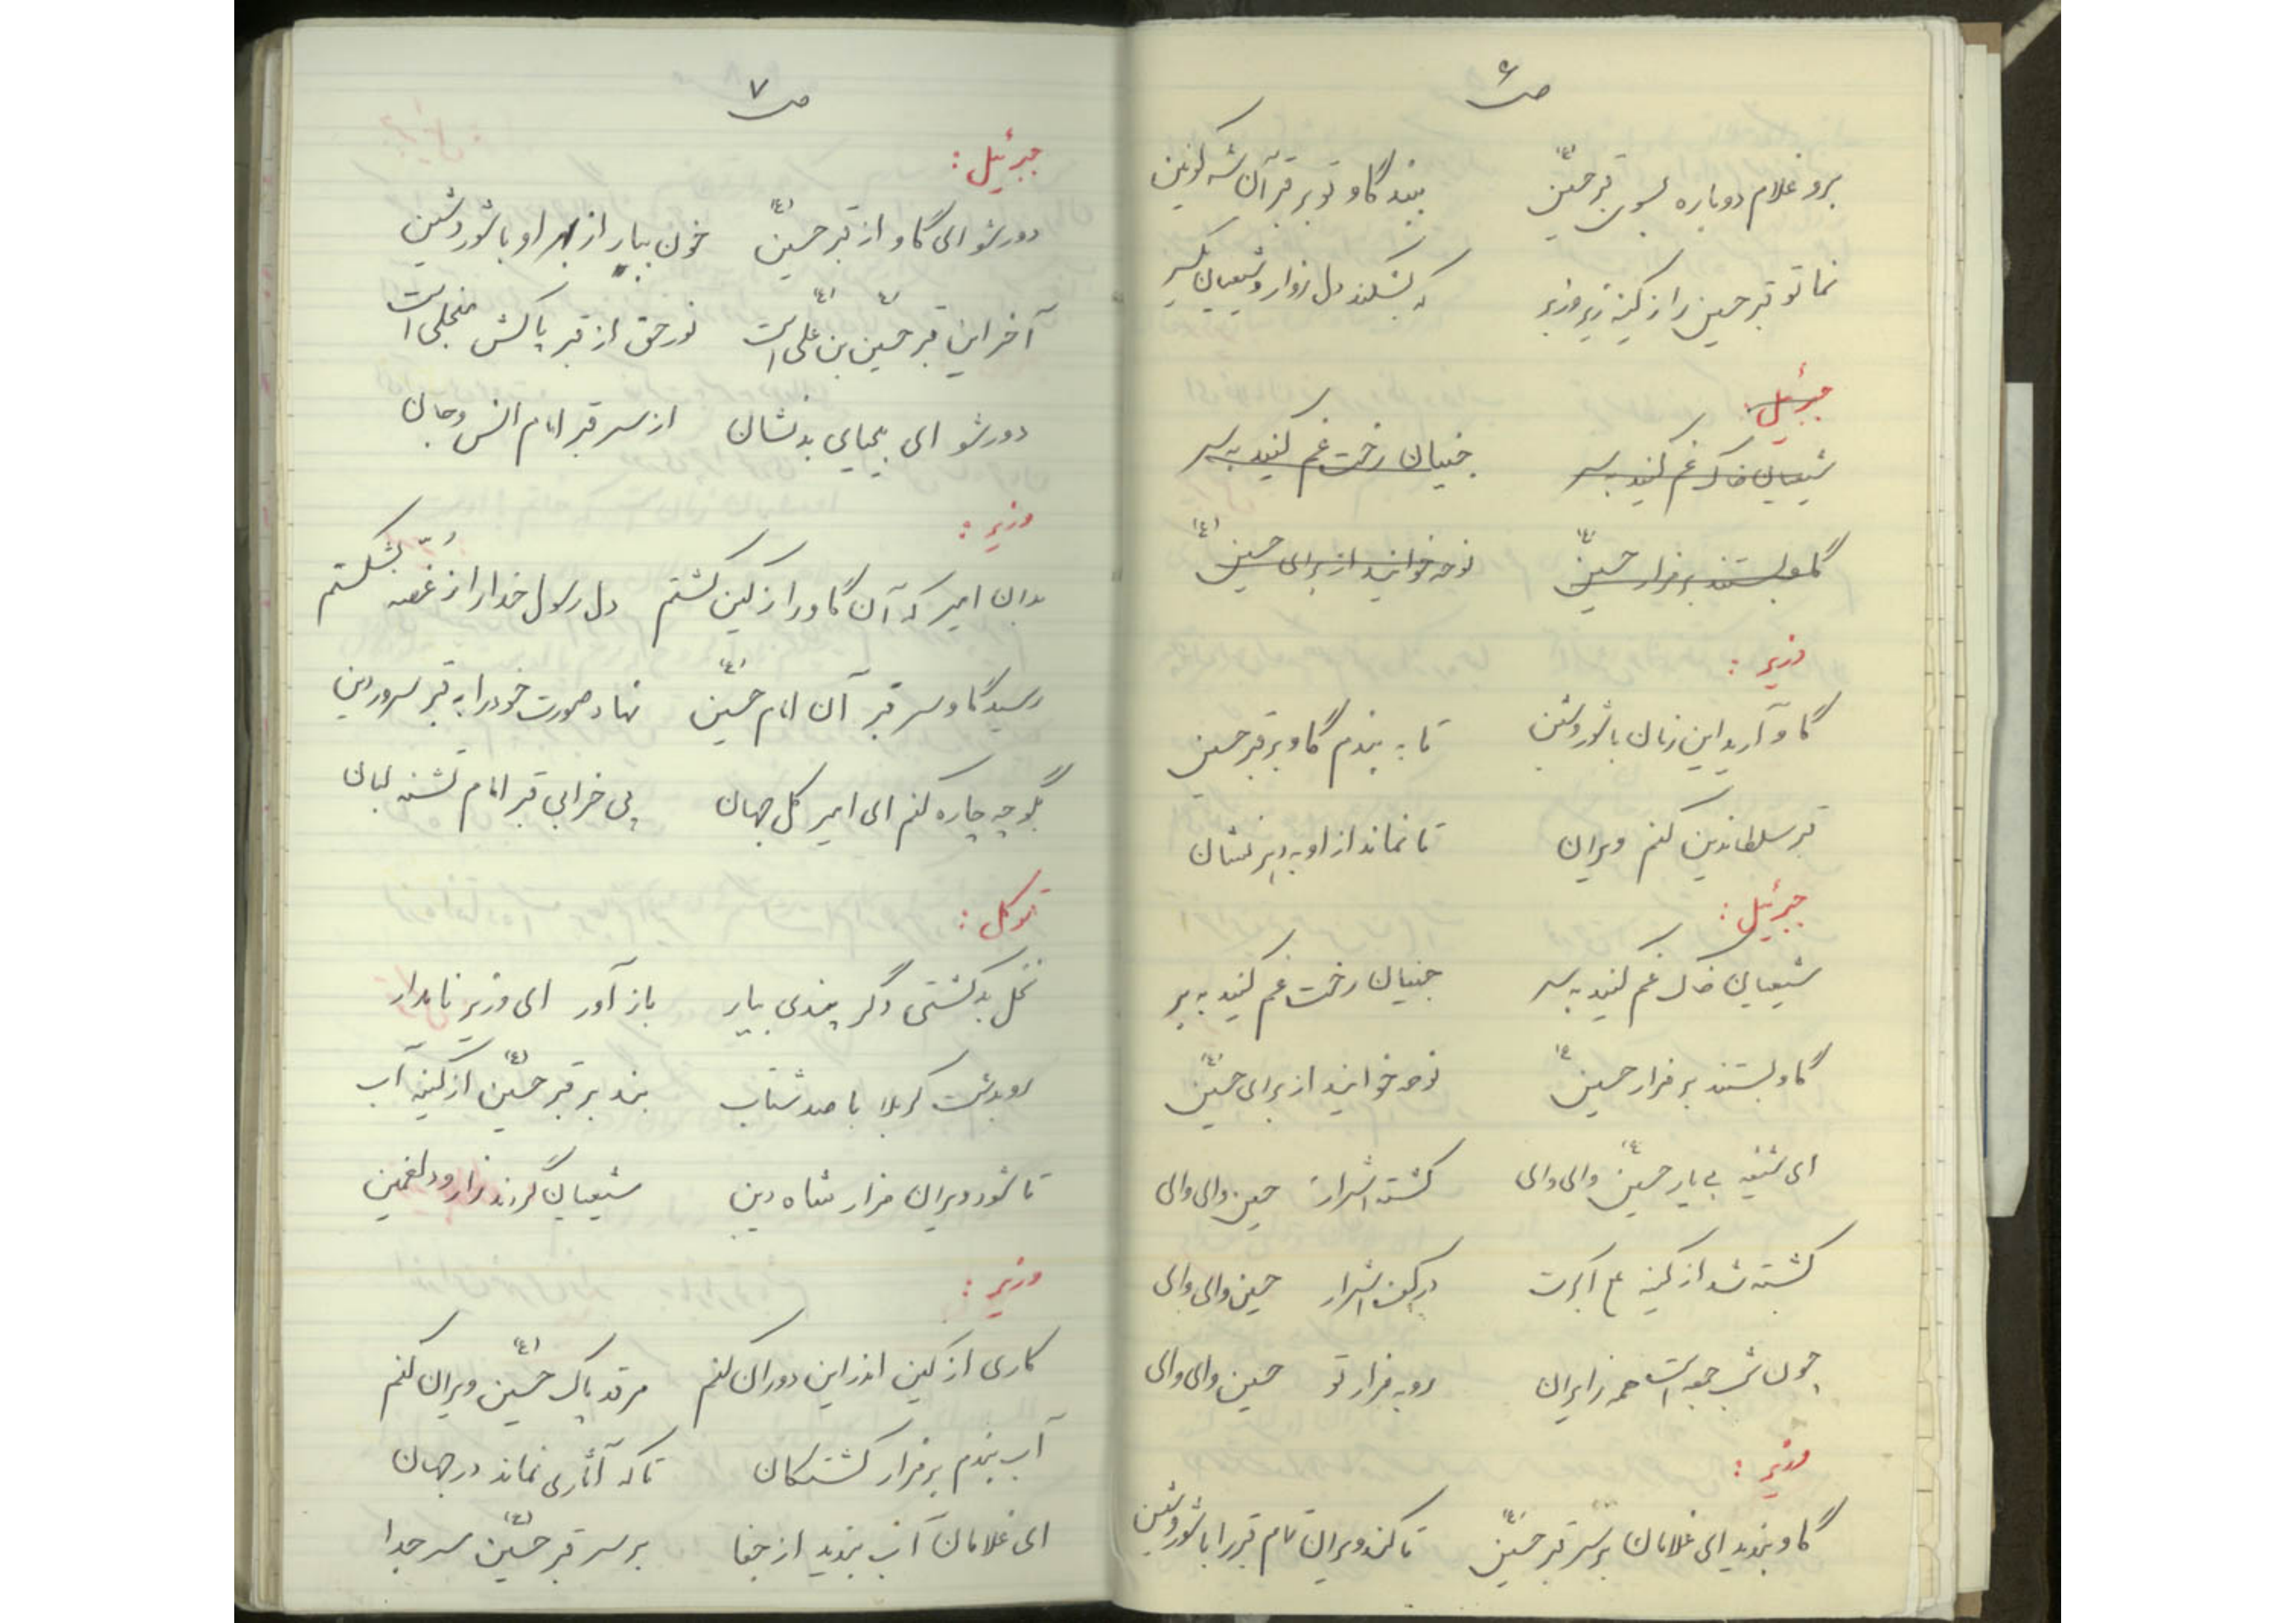 ص ۶
برو غلام دوباره بسوی قبر حسین (ع) ببند گاو تو بر قبر آن شه کونین
نما تو قبر حسین را ز کینه زیر و زبر که بشکند دل زوار و شیعیان یکسر
جبرئیل:
شیعیان خاک غم کنید به سر جنیان رخت غم کنید به سر
گاو بستند بر مزار حسین (ع) نوحه خوانید از برای حسین (ع)
وزیر:
گاو آرید این زمان با شور و شین تا به بندم گاو بر قبر حسین
قبر سلطاندین کنم ویران تا نماند از او به دیر نشان
جبرئیل:
شیعیان خاک غم کنید به سر جنیان رخت غم کنید به بر
گاو بستند بر مزار حسین (ع) نوحه خوانید از برای حسین (ع)
ای شه بی یار حسین (ع) وای وای کشته اشرار حسین وای وای
کشته شد از کینه ع اکبرت از کف اشرار حسین وای وای
چون شب جمعه است همه زایران رو به مزار تو حسین وای وای
وزیر:
گاو بندید ای غلامان بر سر قبر حسین (ع) تا کند ویران تمام قبر را با شور و شین
ص ۷
جبرئیل:
دور شو ای گاو از قبر حسین (ع) خون ببار از بهر او با شور و شین
آخر این قبر حسین (ع) بن علی (ع) است نور حق از قبر پاکش منجلی است
دور شو ای بیحیای بد نشان از سر قبر امام انس و جان
وزیر:
بدان امیر که آن گاو را ز کین کشتم دل رسول خدا را ز غصه بشکستم
رسید گاو سر قبر آن امام حسین (ع) نهاد صورت خود را به قبر سرور دین
بگو چه چاره کنم ای امیر کل جهان پی خرابی قبر امام تشنه لبان
متوکل:
تخم بد کشتی دگر بندی بیار باز آور ای وزیر نامدار
رو بدشت کربلا با صد شتاب بند بر قبر حسین (ع) از کینه آب
تا شود ویران مزار شاه دین شیعیان گردند زار و دلغمین
وزیر:
کاری از کین اندر این دوران کنم مرقد پاک حسین (ع) ویران کنم
آب بندم بر مزار کشتگان تا که آثاری نماند در جهان
ای غلامان آب بندید از جفا بر سر قبر حسین (ع) سر جدا